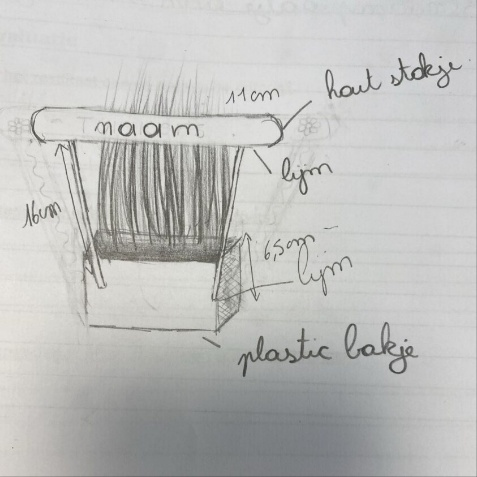 11cm
hout stokje
naam
lijm
16cm
6,5cm
lijm
plastic bakje